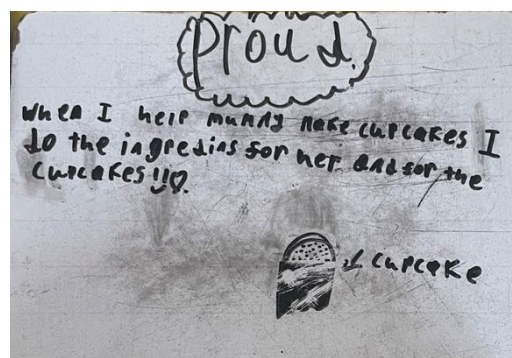 Proud.
When I help mummy make cupcakes I
do the ingredins for her and for the
cupcakes!!♡.
cupcake